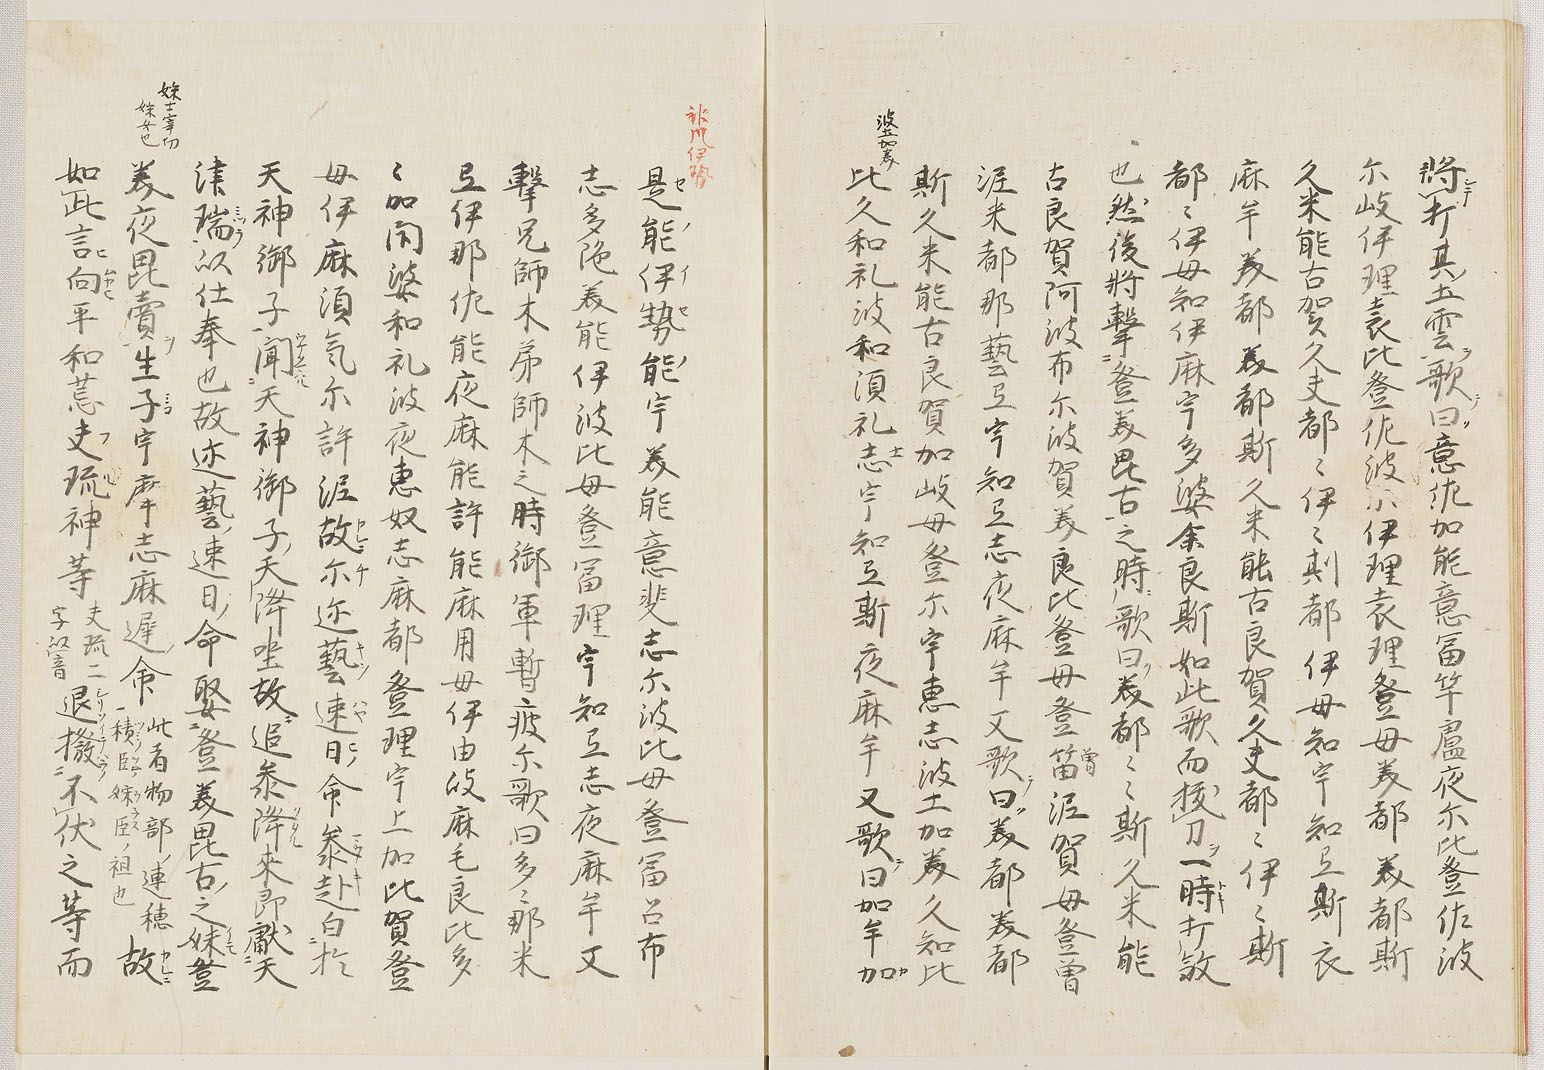 將打其土雲歌曰意佐加能意冨牟盧夜尓比登佐波
尓岐伊理袁比登佐波尓伊理袁理登母美都美都斯
久米能古賀久夫都〻伊〻斯都伊母知宇知弖斯衣
麻牟美都美都斯久米能古良賀久夫都〻伊〻斯
都〻伊母知伊麻宇多婆余良斯如此歌而拔刀一時打敎
也然後將擊登美毘古之時歌曰美都〻〻斯久米能
古良賀阿波布尓波賀美良比登母登笛泥賀母登曽
泥米都那藝弖宇知弖志夜麻牟又歌曰美都美都
斯久米能古良賀加岐母登尓宇惠志波士加美久知比
波士加美
比久和礼波和須礼志宇知弖斯夜麻牟又歌曰加牟加
是能伊勢能宇美能意斐志尓波比母登冨呂布
志多陁美能伊波比母登冨理宇知弖志夜麻牟又
擊兄師木弟師木之時御軍暫疲尓歌曰多〻那米
弖伊那佐能夜麻能許能麻用母伊由岐麻毛良比多
〻加閇婆和礼波夜惠奴志麻都登理宇上加比賀登
母伊麻須氣尓許泥故尓迩藝速日命參赴白於
天神御子聞天神御子天降坐故追參降來即獻天
津瑞以仕奉也故迩藝速日命娶登美毘古之妹登
美夜毘賣生子宇摩志麻遲命此者物部連穗積臣婇臣祖也故
如此言向平和荒夫琉神等夫琉二字以音退撥不伏之等而